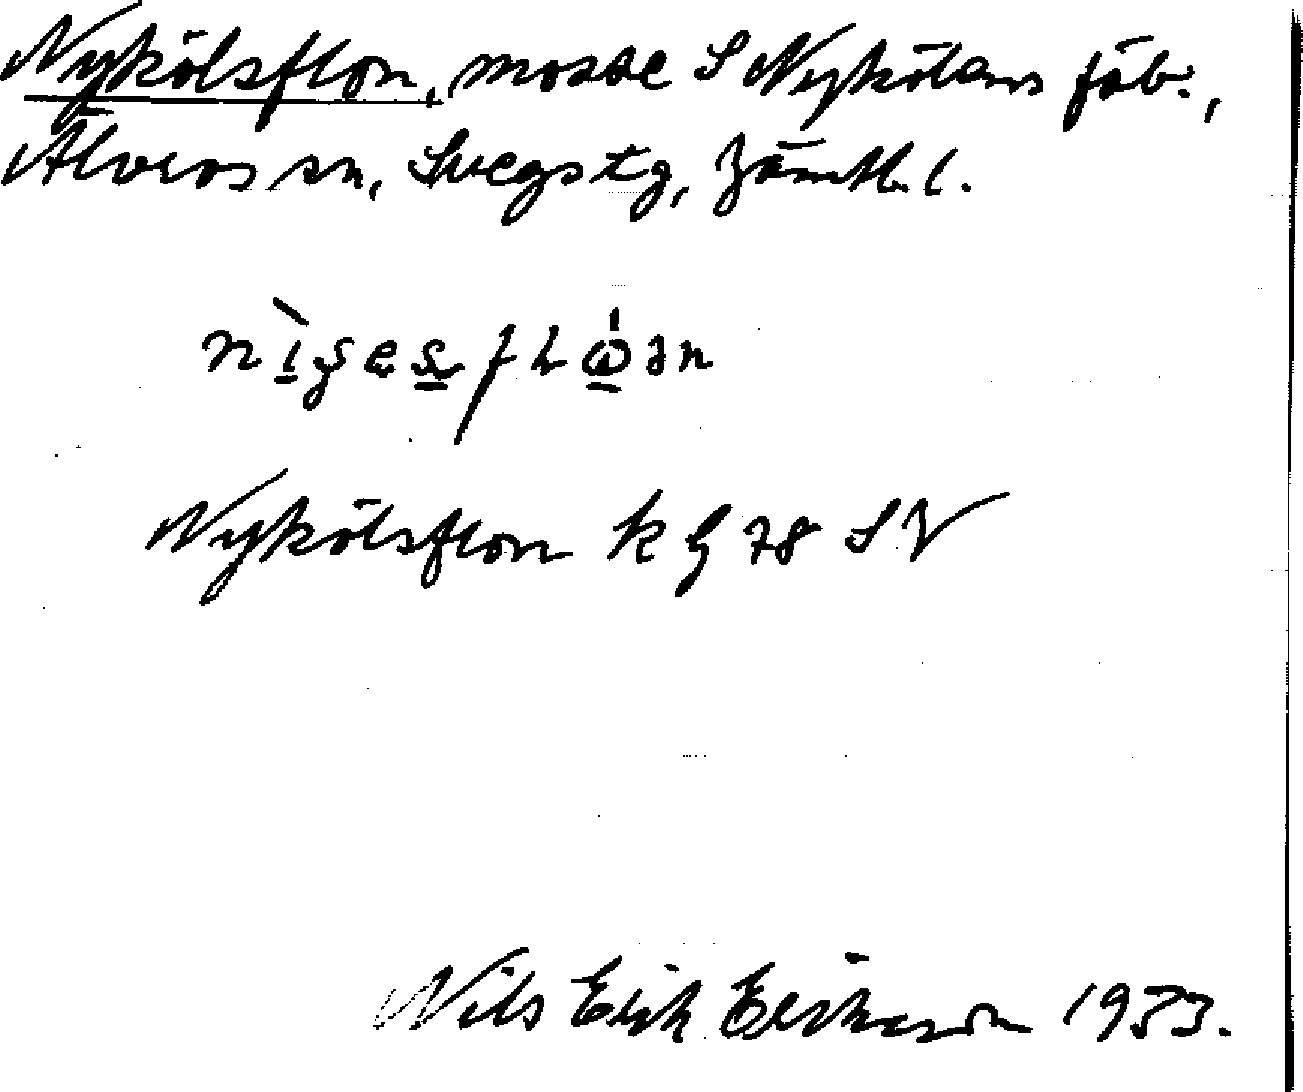 Nykölsflon, mosse S Nykölens fäb.,
Älvros sn, Svegs tg, Jämtl. l.
Nykölsflon k bl 78 SV
Nils Erik Eriksson 1933.